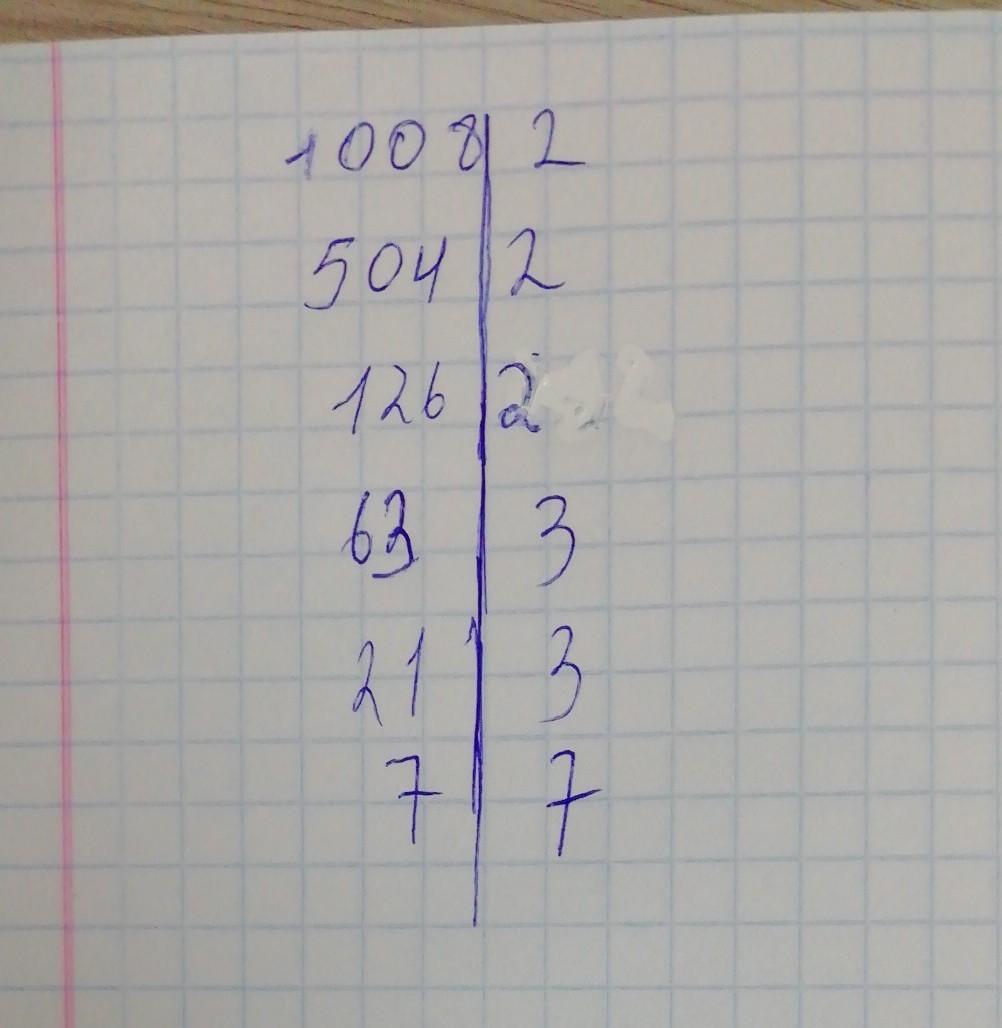 1008 2
504 2
126 2
63 3
21 3
7 7